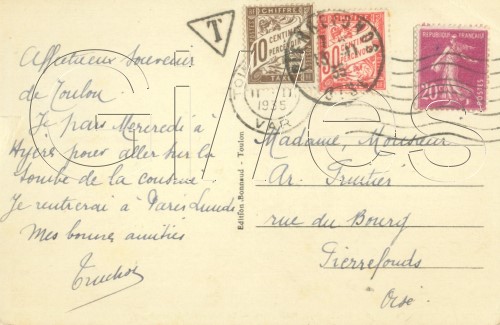 Affectueux Souvenir
de Toulon.
Je pars Mercredi à
Hyères pour aller sur la
tombe de la cousine.
Je rentrerai à Paris Lundi
Mes bonnes amitiés
T
CHIFFRE
10 CENTIMES
A PERCEVOIR
TAXE
TOULON
1935
VAR
PIERREFONDS
OISE
20c
POSTES
Edition Bonnaud - Toulon
Madame, Monsieur
Ar. Fruitier
rue du Bourg
Pierrefonds
Oise